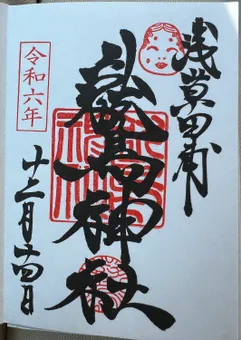 浅草田甫
鷲神社
令和六年
十二月十四日